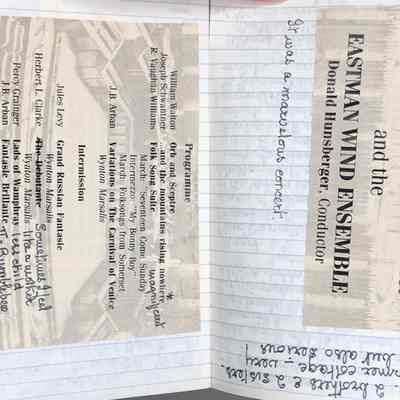 Programme
William Walton Orb and Sceptre
Joseph Schwantner ...and the mountains rising nowhere * magnificent
R. Vaughan Williams Folk Song Suite
March: "Seventeen Come Sunday"
Intermezzo: "My Bonny Boy"
March: Folksongs from Somerset
J.B. Arban Variations on The Carnival of Venice
Wynton Marsalis
Intermission
Jules Levy Grand Russian Fantasie
Wynton Marsalis
Herbert L. Clarke The Debutante Sometimes I feel
Wynton Marsalis like a motherless child
Percy Grainger Lads of Wamphray
J.B. Arban Fantasie Brillante Bumblebee
and the
EASTMAN WIND ENSEMBLE
Donald Hunsberger, Conductor
It was a marvelous concert.
2 brothers & 2 sisters.
cottage – very
but also serious